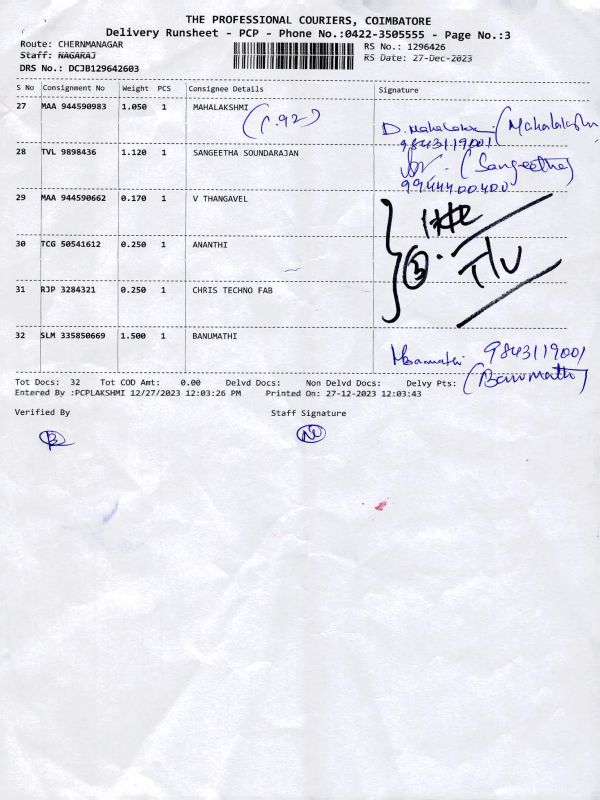 THE PROFESSIONAL COURIERS, COIMBATORE
Delivery Runsheet - PCP - Phone No.:0422-3505555 - Page No.:3
Route: CHERNMANAGAR RS No.: 1296426
Staff: NAGARAJ RS Date: 27-Dec-2023
DRS No.: DCJB129642603
S No Consignment No Weight PCS Consignee Details Signature
27 MAA 944590983 1.050 1 MAHALAKSHMI (1.92) D. Mahalakshmi (Mahalakshmi
9843119001
28 TVL 9898436 1.120 1 SANGEETHA SOUNDARAJAN (Sangeetha)
9944400400
29 MAA 944590662 0.170 1 V THANGAVEL
30 TCG 50541612 0.250 1 ANANTHI ③
31 RJP 3284321 0.250 1 CHRIS TECHNO FAB
32 SLM 335850669 1.500 1 BANUMATHI Banumathi 9843119001
(Banumathi)
Tot Docs: 32 Tot COD Amt: 0.00 Delvd Docs: Non Delvd Docs: Delvy Pts:
Entered By :PCPLAKSHMI 12/27/2023 12:03:26 PM Printed On: 27-12-2023 12:03:43
Verified By Staff Signature